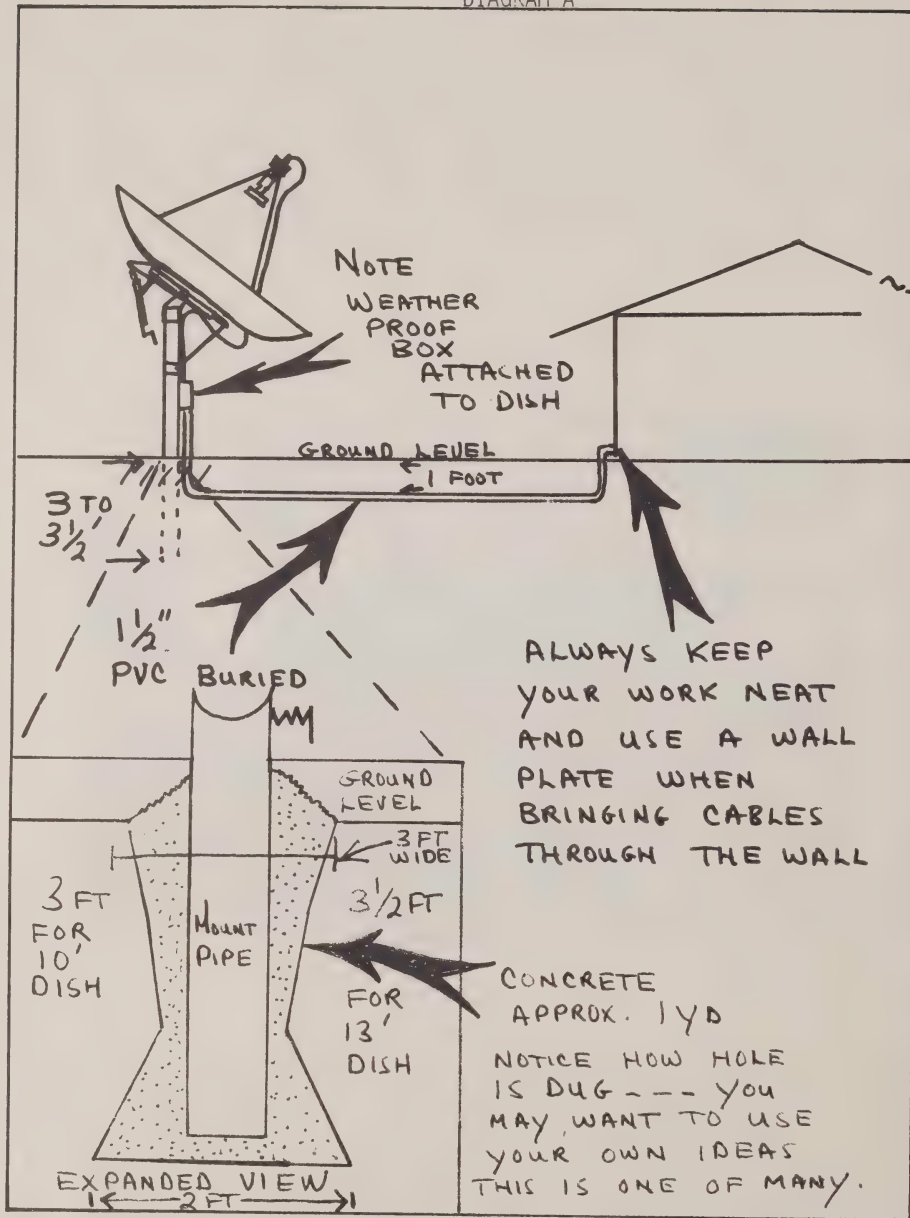 DIAGRAM A
NOTE
WEATHER
PROOF
BOX
ATTACHED
TO DISH
GROUND LEVEL
1 FOOT
3 TO
3 1/2'
1 1/2"
PVC BURIED
ALWAYS KEEP
YOUR WORK NEAT
AND USE A WALL
PLATE WHEN
BRINGING CABLES
THROUGH THE WALL
GROUND
LEVEL
3 FT
WIDE
3 FT
FOR
10'
DISH
MOUNT
PIPE
3 1/2 FT
FOR
13'
DISH
CONCRETE
APPROX. 1 YD
NOTICE HOW HOLE
IS DUG --- YOU
MAY WANT TO USE
YOUR OWN IDEAS
THIS IS ONE OF MANY.
EXPANDED VIEW
2 FT